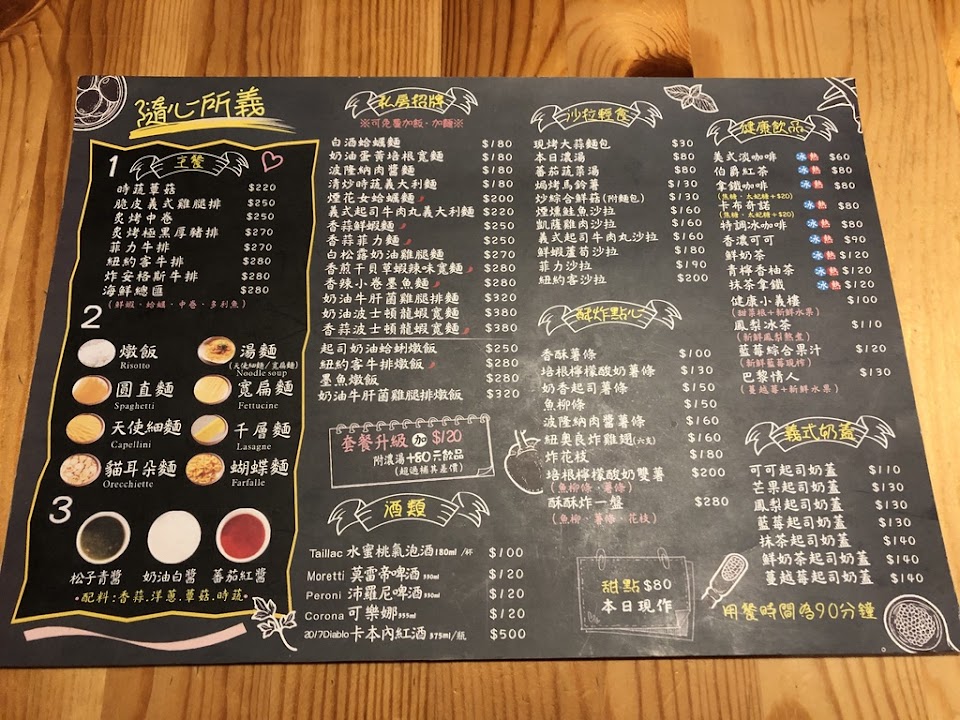 隨心所義
1 主餐
時蔬蕈菇 $220
脆皮義式雞腿排 $250
炙烤中卷 $250
炙烤極黑厚豬排 $270
菲力牛排 $270
紐約客牛排 $280
炸安格斯牛排 $280
海鮮總匯 $280
(鮮蝦、蛤蠣、中卷、多利魚)
2
燉飯 Risotto
湯麵 (天使細麵/寬扁麵) Noodle soup
圓直麵 Spaghetti
寬扁麵 Fettucine
天使細麵 Capellini
千層麵 Lasagne
貓耳朵麵 Orecchiette
蝴蝶麵 Farfalle
3
松子青醬 奶油白醬 蕃茄紅醬
•配料:香蒜.洋蔥.蕈菇.時蔬•
私房招牌
※可免費加飯、加麵※
白酒蛤蠣麵 $180
奶油蛋黃培根寬麵 $180
波隆納肉醬麵 $180
清炒時蔬義大利麵 $180
煙花女蛤蠣麵 $200
義式起司牛肉丸義大利麵 $220
香蒜鮮蝦麵 $250
香蒜菲力麵 $250
白松露奶油雞腿麵 $270
香煎干貝草蝦辣味寬麵 $280
香辣小卷墨魚麵 $280
奶油牛肝菌雞腿排麵 $320
奶油波士頓龍蝦寬麵 $380
香蒜波士頓龍蝦寬麵 $380
起司奶油蛤蜊燉飯 $250
紐約客牛排燉飯 $280
墨魚燉飯 $280
奶油牛肝菌雞腿排燉飯 $320
套餐升級 加 $120
附濃湯+80元飲品
(超過補其差價)
酒類
Taillac 水蜜桃氣泡酒 180ml /杯 $100
Moretti 莫雷帝啤酒 330ml $120
Peroni 沛羅尼啤酒 330ml $120
Corona 可樂娜 355ml $120
20/7Diablo 卡本內紅酒 375ml/瓶 $500
沙拉輕食
現烤大蒜麵包 $30
本日濃湯 $80
蕃茄蔬菜湯 $80
焗烤馬鈴薯 $130
炒綜合鮮菇(附麵包) $130
煙燻鮭魚沙拉 $160
凱薩雞肉沙拉 $160
義式起司牛肉丸沙拉 $160
鮮蝦蘆筍沙拉 $180
菲力沙拉 $190
紐約客沙拉 $200
酥炸點心
香酥薯條 $100
培根檸檬酸奶薯條 $130
奶香起司薯條 $150
魚柳條 $150
波隆納肉醬薯條 $160
紐奧良炸雞翅(六支) $160
炸花枝 $180
培根檸檬酸奶雙薯 $200
(魚柳條、薯條)
酥酥炸一盤 $280
(魚柳、薯條、花枝)
甜點 $80
本日現作
健康飲品
美式淡咖啡 冰 熱 $60
伯爵紅茶 冰 熱 $80
拿鐵咖啡 冰 熱 $80
(焦糖、太妃糖+$20)
卡布奇諾 冰 熱 $80
(焦糖、太妃糖+$20)
特調冰咖啡 $80
香濃可可 冰 熱 $90
鮮奶茶 冰 熱 $120
青檸香柚茶 冰 熱 $120
抹茶拿鐵 冰 熱 $120
健康小義樓 $100
(甜菜根+新鮮水果)
鳳梨冰茶 $110
(新鮮鳳梨熬煮)
藍莓綜合果汁 $120
(新鮮藍莓現榨)
巴黎情人 $130
(蔓越莓+新鮮水果)
義式奶蓋
可可起司奶蓋 $110
芒果起司奶蓋 $130
鳳梨起司奶蓋 $130
藍莓起司奶蓋 $130
抹茶起司奶蓋 $140
鮮奶茶起司奶蓋 $140
蔓越莓起司奶蓋 $140
用餐時間為90分鐘